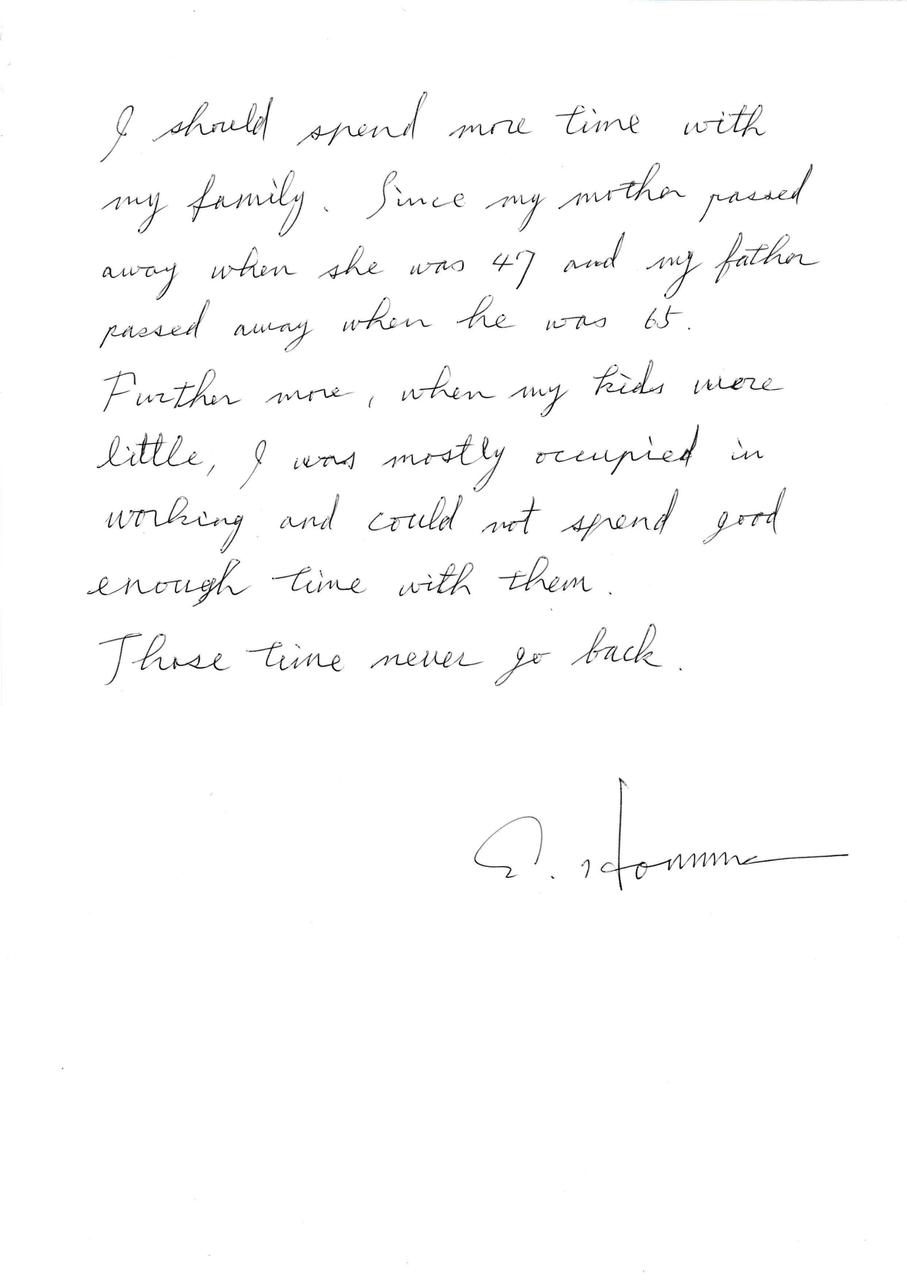 I should spend more time with
my family. Since my mother passed
away when she was 47 and my father
passed away when he was 65.
Further more, when my kids were
little, I was mostly occupied in
working and could not spend good
enough time with them.
Those time never go back.